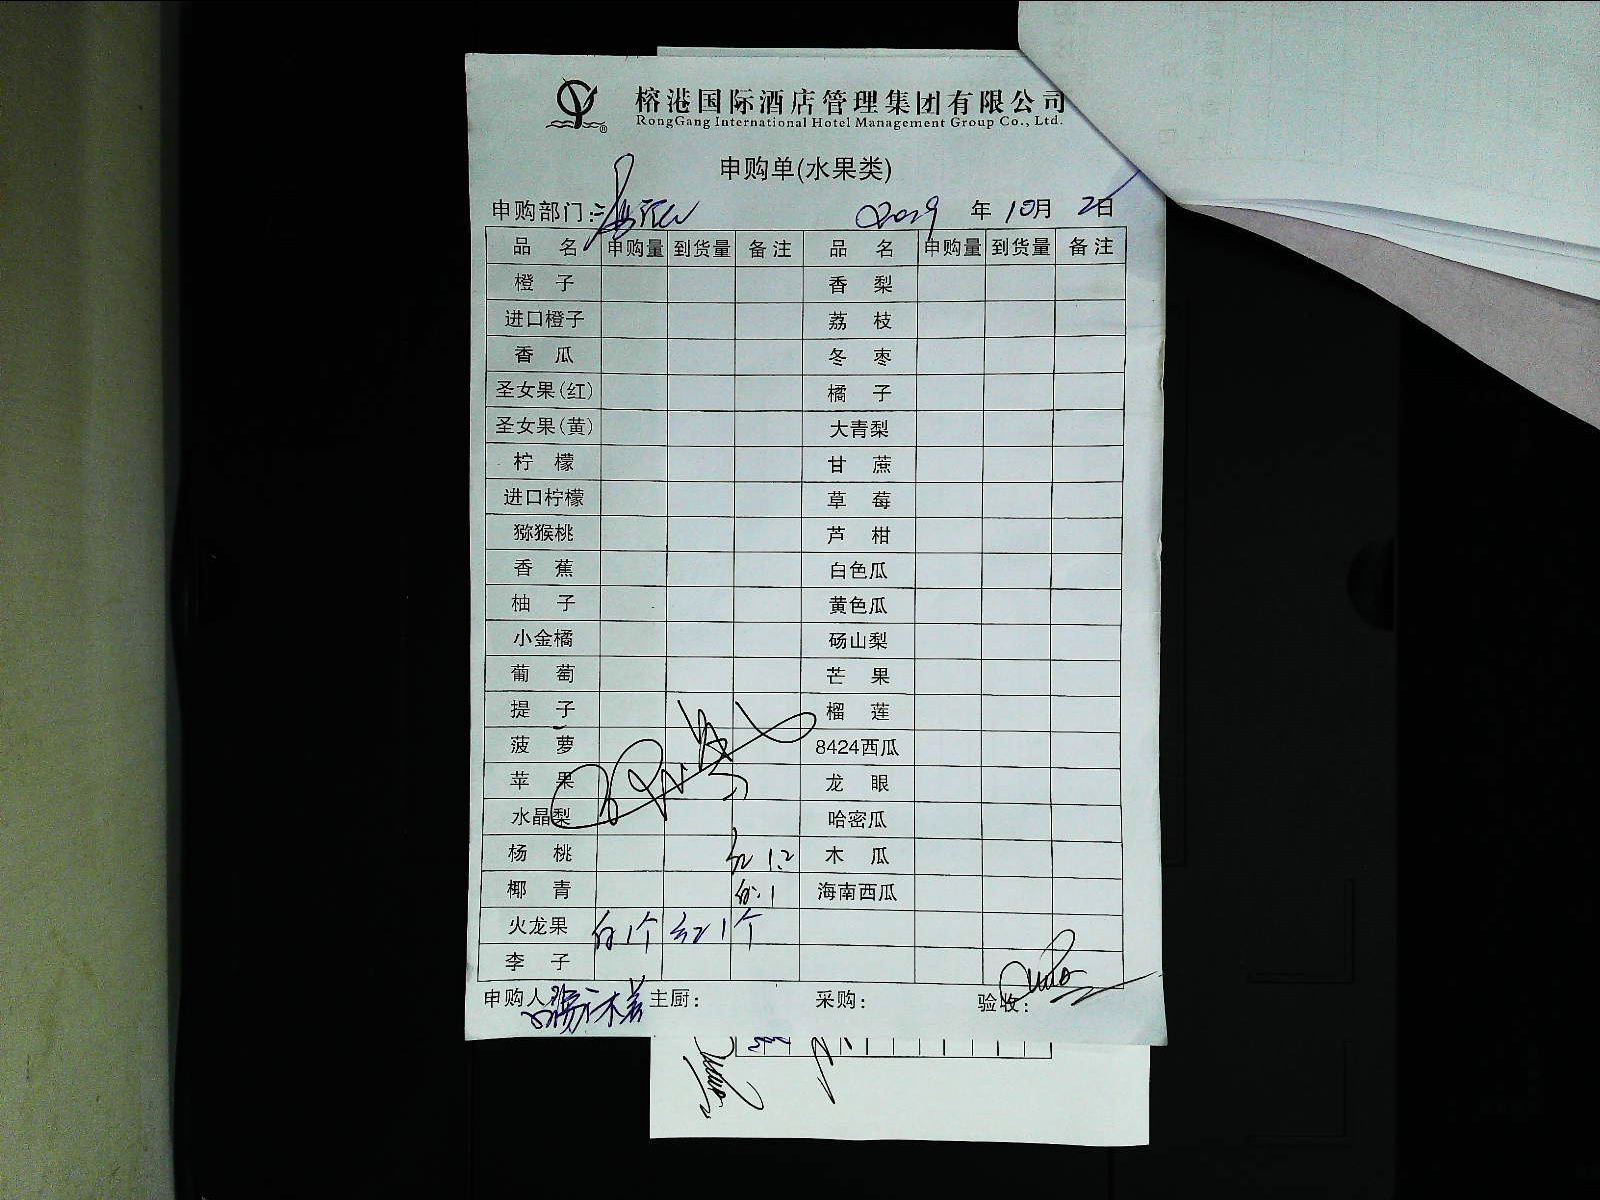 榕港国际酒店管理集团有限公司
RongGang International Hotel Management Group Co., Ltd.
申购单(水果类)
申购部门: 2029 年 10月 2日
品 名 申购量 到货量 备注 品 名 申购量 到货量 备注
橙 子 香 梨
进口橙子 荔 枝
香 瓜 冬 枣
圣女果(红) 橘 子
圣女果(黄) 大青梨
柠 檬 甘 蔗
进口柠檬 草 莓
猕猴桃 芦 柑
香 蕉 白色瓜
柚 子 黄色瓜
小金橘 砀山梨
葡 萄 芒 果
提 子 榴 莲
菠 萝 8424西瓜
苹 果 龙 眼
水晶梨 哈密瓜
杨 桃 红 1.2 木 瓜
椰 青 白. 1 海南西瓜
火龙果 白1个 红1个
李 子
申购人 主厨: 采购: 验收: